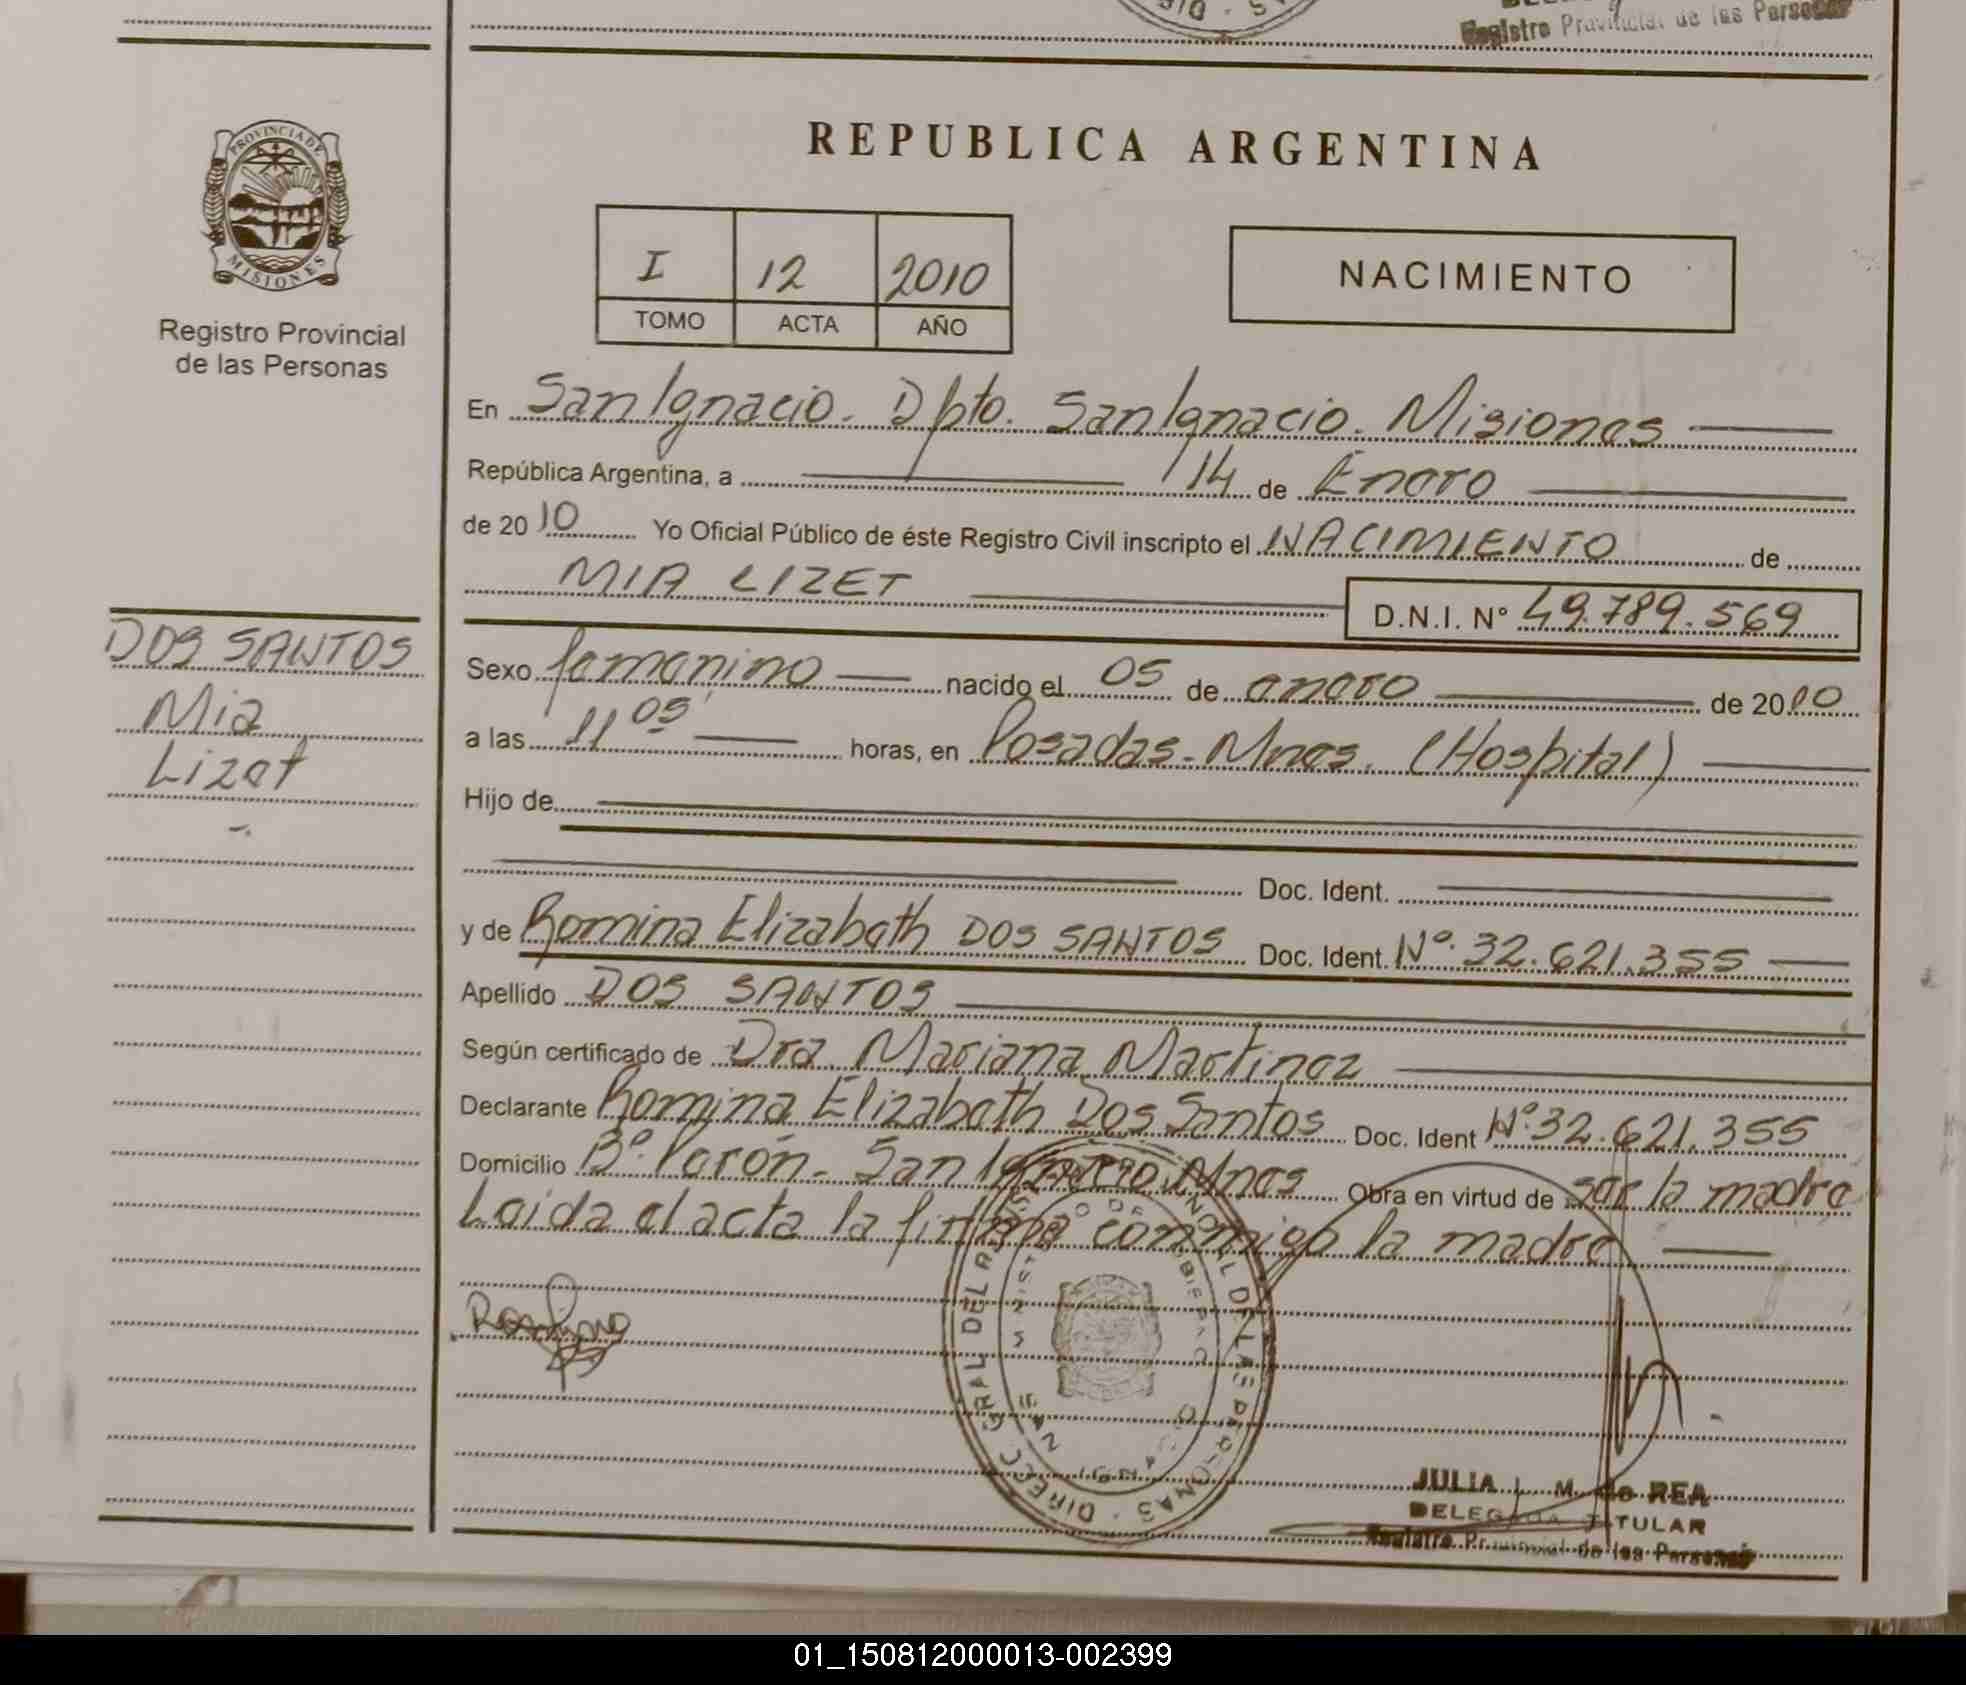 Registro Provincial de las Personas
REPUBLICA ARGENTINA
PROVINCIA DE
MISIONES
Registro Provincial
de las Personas
I 12 2010
TOMO ACTA AÑO
NACIMIENTO
En San Ignacio. Dpto. San Ignacio. Misiones
República Argentina, a 14 de Enero
de 2010 Yo Oficial Público de éste Registro Civil inscripto el NACIMIENTO de
MIA LIZET D.N.I. Nº 49.789.569
DOS SANTOS
Mia
Lizet
Sexo femenino nacido el 05 de enero de 2010
a las 11 05 horas, en Posadas - Mnes. (Hospital)
Hijo de
Doc. Ident.
y de Romina Elizabeth DOS SANTOS Doc. Ident. Nº. 32.621.355
Apellido DOS SANTOS
Según certificado de Dra. Mariana Martinez
Declarante Romina Elizabeth Dos Santos Doc. Ident Nº. 32.621.355
Domicilio Bº. Perón - San Ignacio. Mnes Obra en virtud de ser la madre
Leida el acta la firma conmigo la madre
Romina
JULIA M. de REA
DELEGADA TITULAR
Registro Provincial de las Personas
01_150812000013-002399